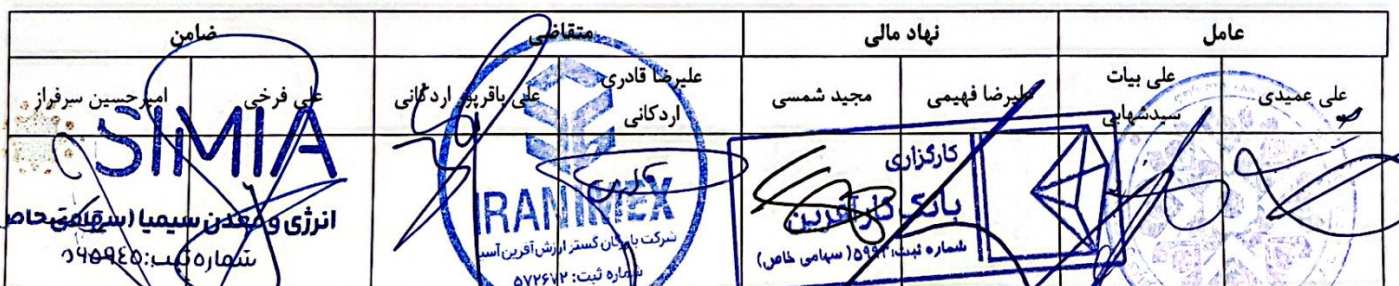 عامل
نهاد مالی
متقاضی
ضامن
علی عمیدی
علی بیات
سیدشهابی
علیرضا فهیمی
مجید شمسی
علیرضا قادری
اردکانی
علی باقرپور اردکانی
علی فرخی
امیرحسین سرفراز
کارگزاری
بانک کارآفرین
شماره ثبت: ۵۹۹۲ (سهامی خاص)
IRANIMEX
شرکت بازرگان گستر ارزش آفرین آسیا
شماره ثبت: ۵۷۲۶۷۲
SIMIA
انرژی و معدن سیمیا (سهامی خاص
شماره ثبت: